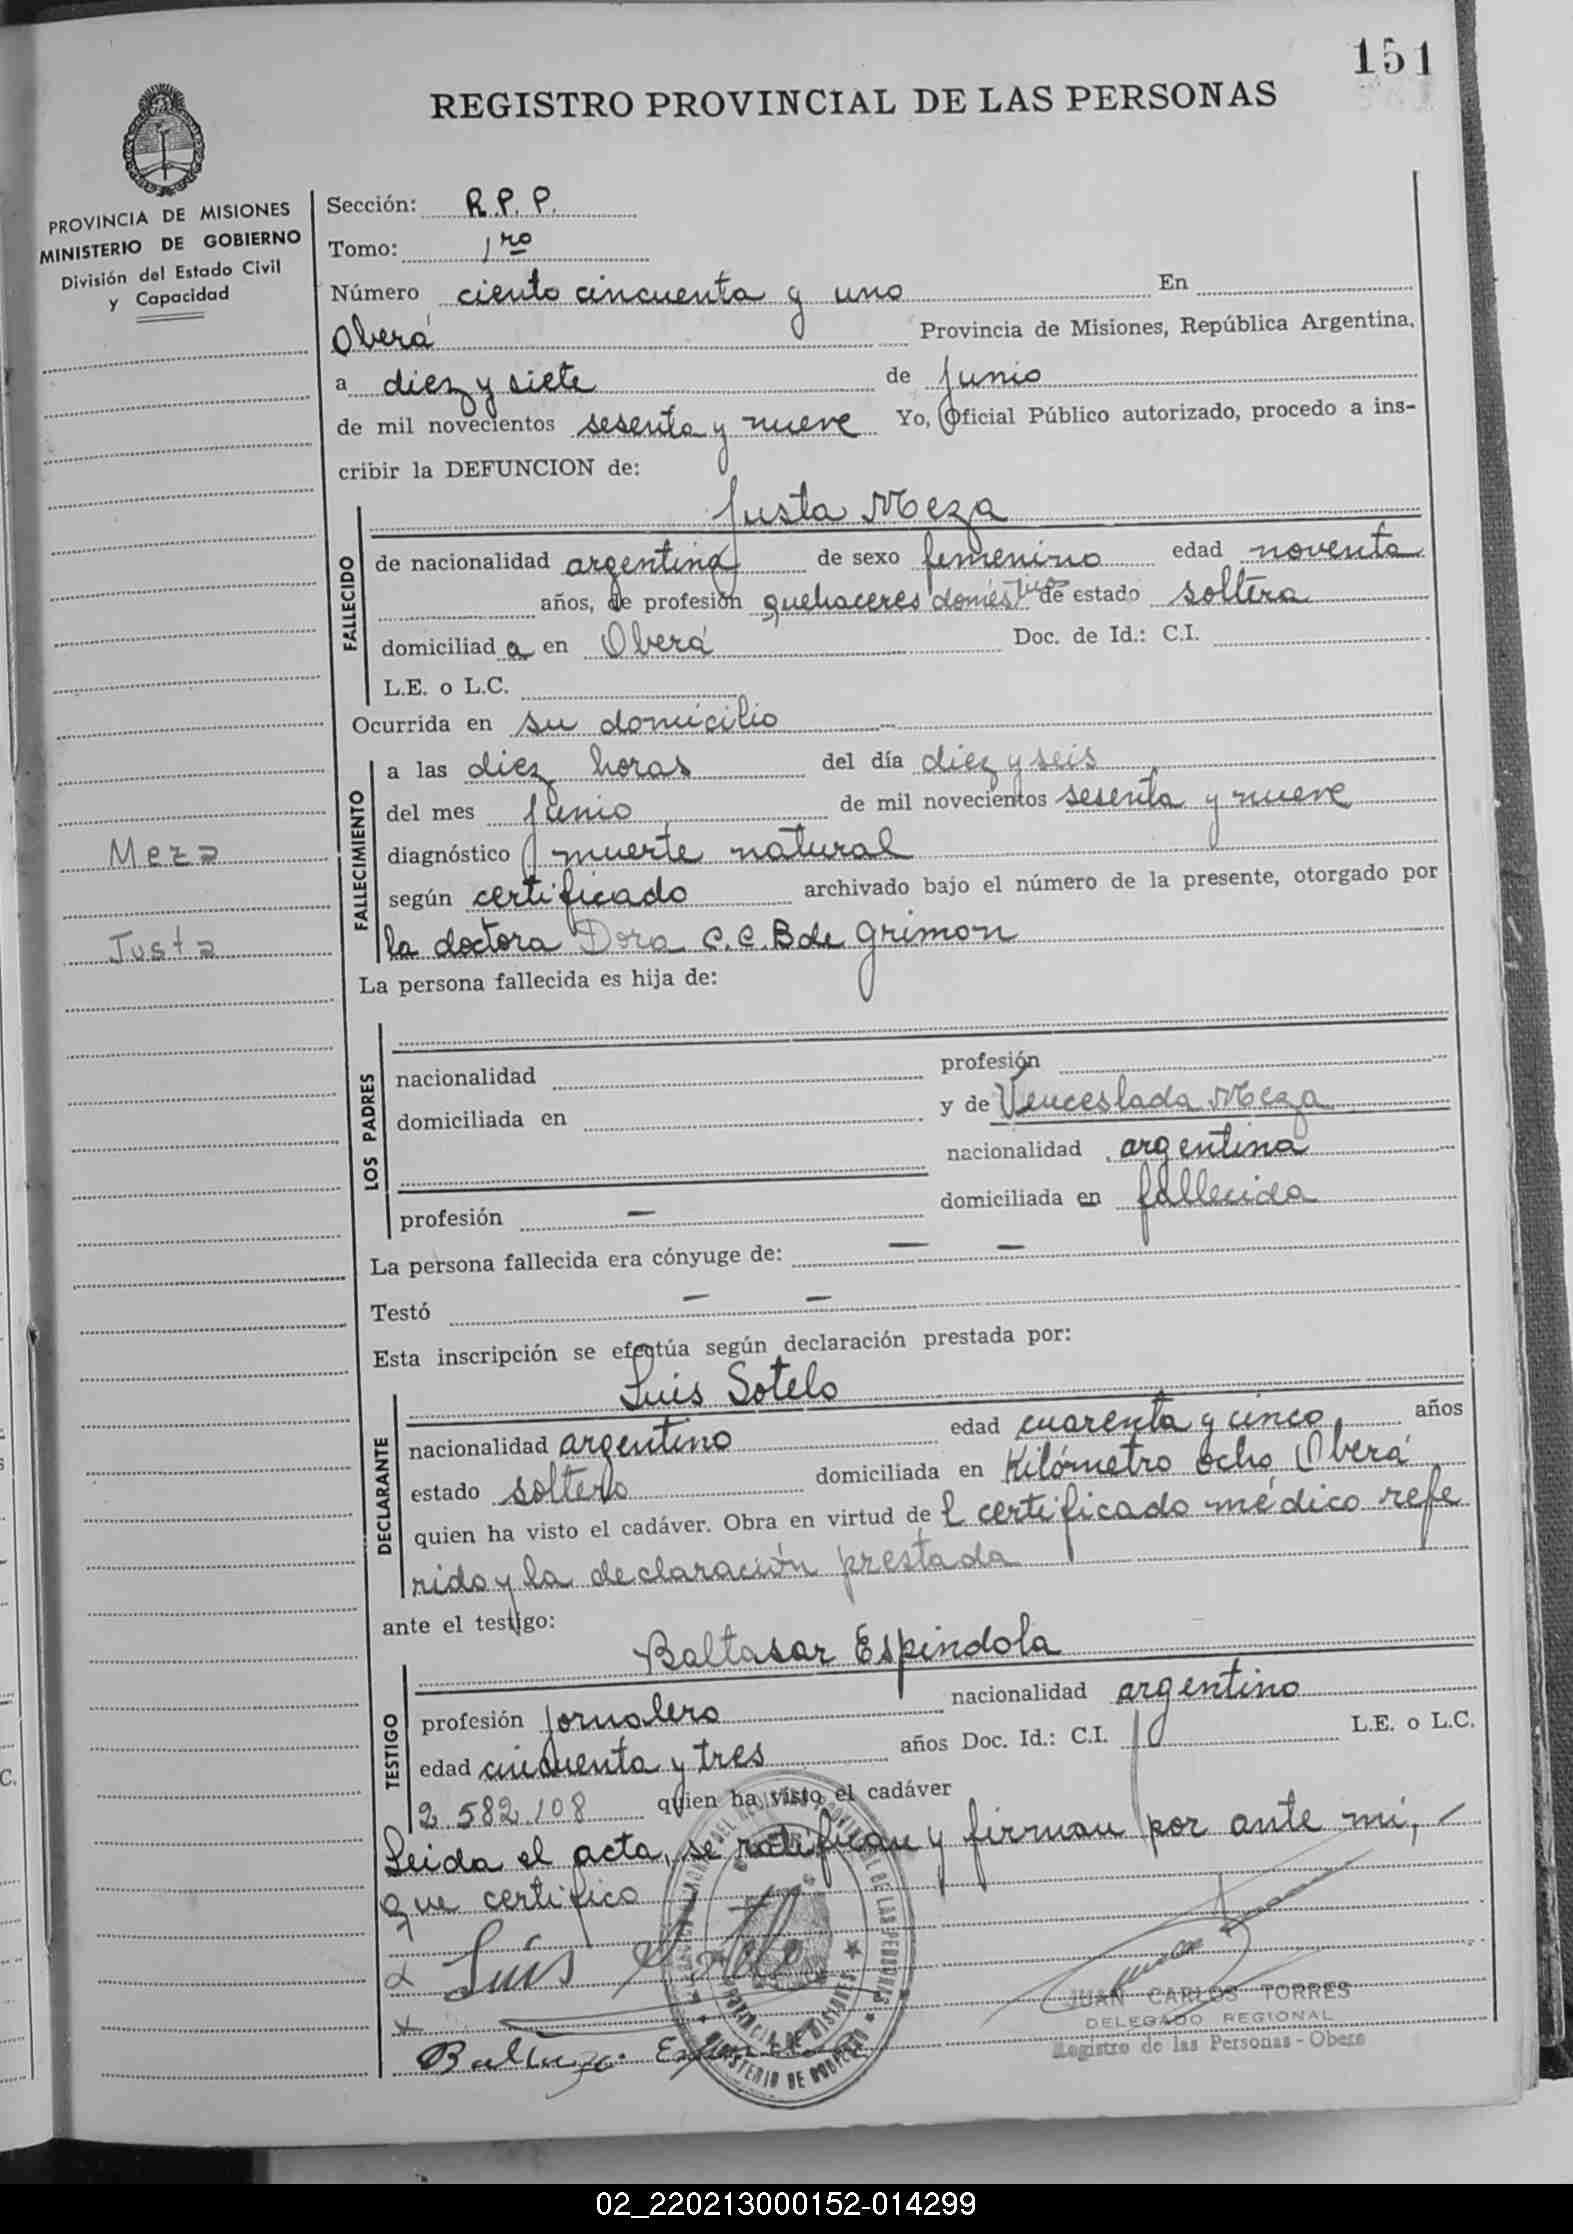 151
REGISTRO PROVINCIAL DE LAS PERSONAS
PROVINCIA DE MISIONES
MINISTERIO DE GOBIERNO
División del Estado Civil
y Capacidad
Meza
Justa
Sección: R.P.P.
Tomo: 1ro
Número ciento cincuenta y uno En
Oberá Provincia de Misiones, República Argentina,
a diez y siete de Junio
de mil novecientos sesenta y nueve Yo, Oficial Público autorizado, procedo a ins-
cribir la DEFUNCION de:
FALLECIDO
Justa Meza
de nacionalidad argentina de sexo femenino edad noventa
años, de profesión quehaceres domésticos de estado soltera
domiciliad a en Oberá Doc. de Id.: C.I.
L.E. o L.C.
Ocurrida en su domicilio
FALLECIMIENTO
a las diez horas del día diez y seis
del mes Junio de mil novecientos sesenta y nueve
diagnóstico muerte natural
según certificado archivado bajo el número de la presente, otorgado por
la doctora Dora C.C.B de Grimon
La persona fallecida es hija de:
LOS PADRES
nacionalidad profesión
domiciliada en y de Venceslada Meza
nacionalidad argentina
profesión — domiciliada en fallecida
La persona fallecida era cónyuge de: — —
Testó — —
Esta inscripción se efectúa según declaración prestada por:
DECLARANTE
Luis Sotelo
nacionalidad argentino edad cuarenta y cinco años
estado soltero domiciliada en Kilómetro ocho Oberá
quien ha visto el cadáver. Obra en virtud de l certificado médico refe
rido y la declaración prestada
ante el testigo:
TESTIGO
Baltasar Espindola
profesión jornalero nacionalidad argentino
edad cincuenta y tres años Doc. Id.: C.I. L.E. o L.C.
2.582.108 quien ha visto el cadáver
Leida el acta, se ratifican y firman por ante mi, —
que certifico
Luis Sotelo
JUAN CARLOS TORRES
DELEGADO REGIONAL
Registro de las Personas - Obera
PROVINCIA DE MISIONES
MINISTERIO DE GOBIERNO
02_220213000152-014299